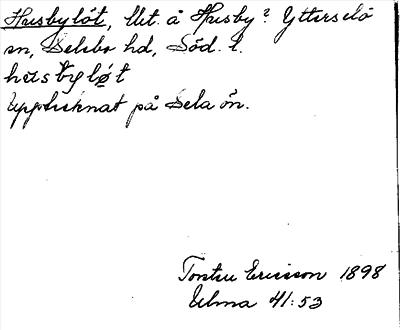 Husbylöt, llt. å Husby? Ytterselö
sn, Selebo hd, Söd. l.
husbyløt
Upptecknat på Sela ön.
Torsten Ericsson 1898
Ulma 41:53